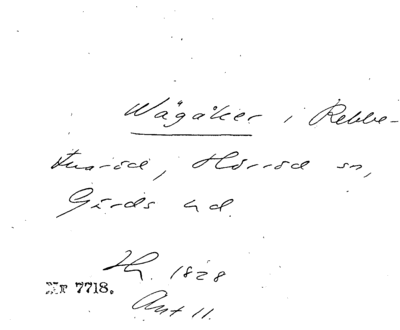 Wågåker i Rebbe-
tuaröd, Hörröd sn,
Gärds hd.
Hy. 1828
Nr 7718.
Akt 11.